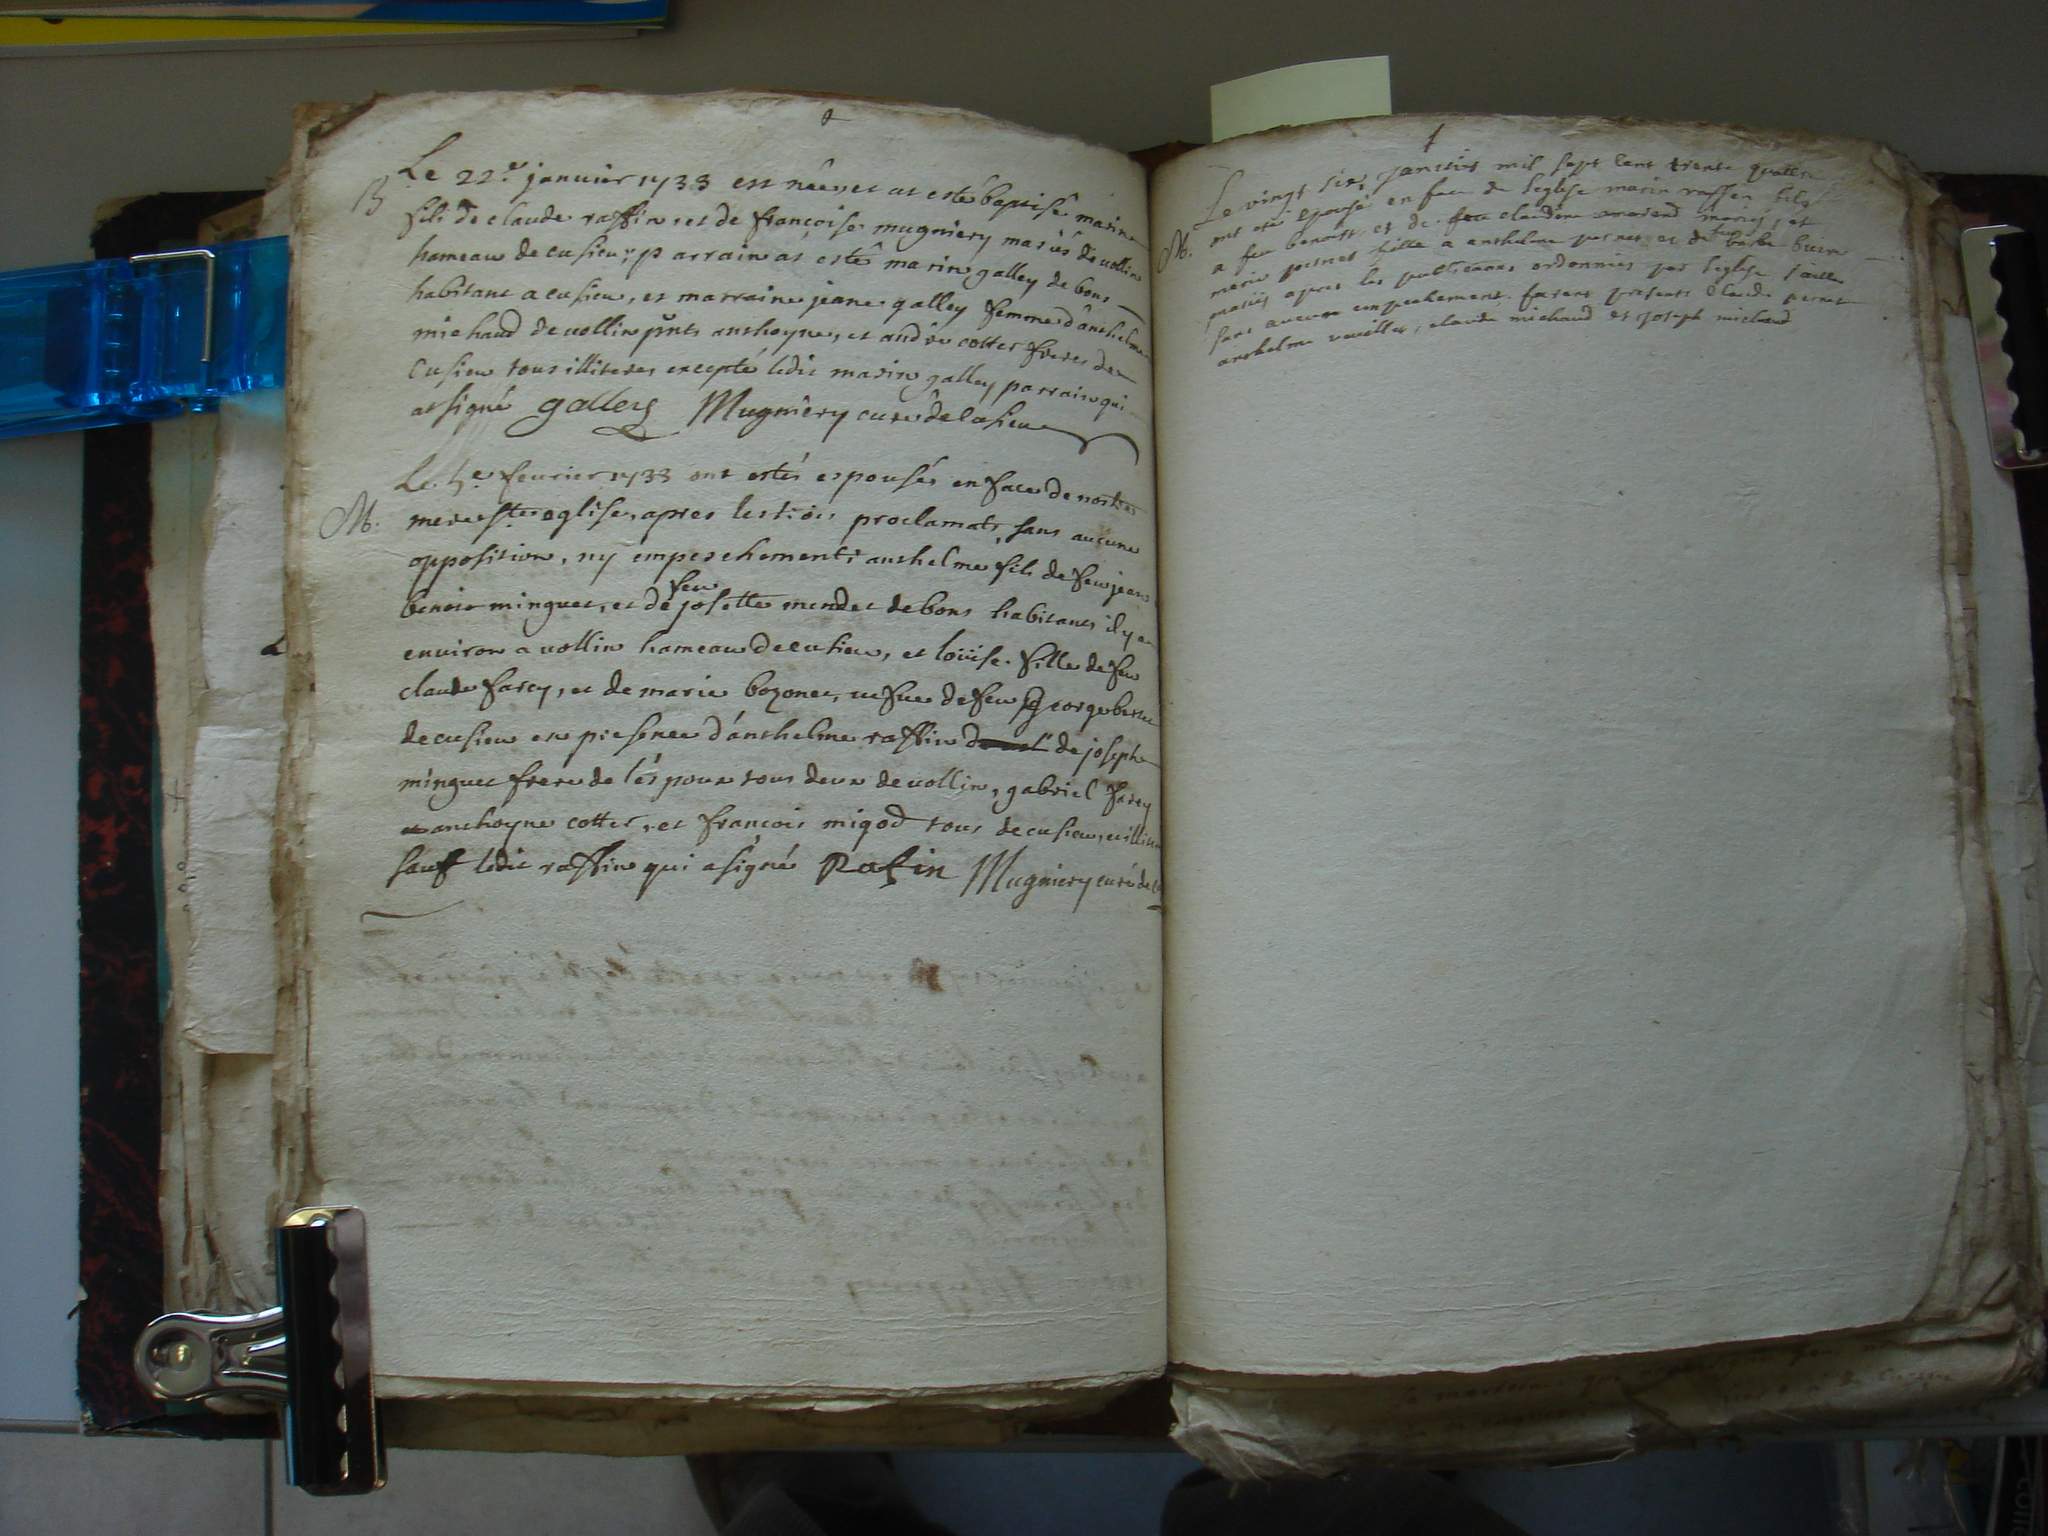 B
Le 22.e janvier 1733 est née, et at esté baptisé marin
fils de claude raffin, et de françoise mugniery mariés de vollin
hameau de cusieu; parrain at esté marin galley de bons
habitant a cusieu, et marraine jeane galley femme d'anthelme
michaud de vollin pnts anthoyne, et andre cotter freres de
Cusieu tous illiteres excepté ledit marin galley parrain qui
at signé galley Mugniery curé de Cusieu
M.
Le 5e fevrier 1733 ont estés espousés en face de nostre
mere Ste eglise, apres les trois proclamats, sans aucune
opposition, ny empeschement: anthelme fils de feu jean
benoit minguet, et de feu josette mendet de bons habitants il y a
environ a vollin hameau de cusieu, et loüise fille de feu
claude farcy, et de marie bozonet, vefue de feu George
de cusieu en presence d'anthelme raffin de joseph
minguet frere de l'époux tous deux de vollin, gabriel farcy
anthoyne cotter, et françois migod tous de cusieu,
sauf ledit raffin qui a signé Rafin Mugniery curé de
M.
Le vingt six janvier mil sept cent trente quattre
ont eté epousé en face de l'eglise marin raffin fils
a feu benoist et de feu claudine morand mariés, et
marie pernet fille a anthelme pernet et de feu barbe
mariés apres les publications ordonnées par l'eglise faittes
sans aucun empechement. furent presents Claude pernet
anthelme claude michaud et joseph michaud